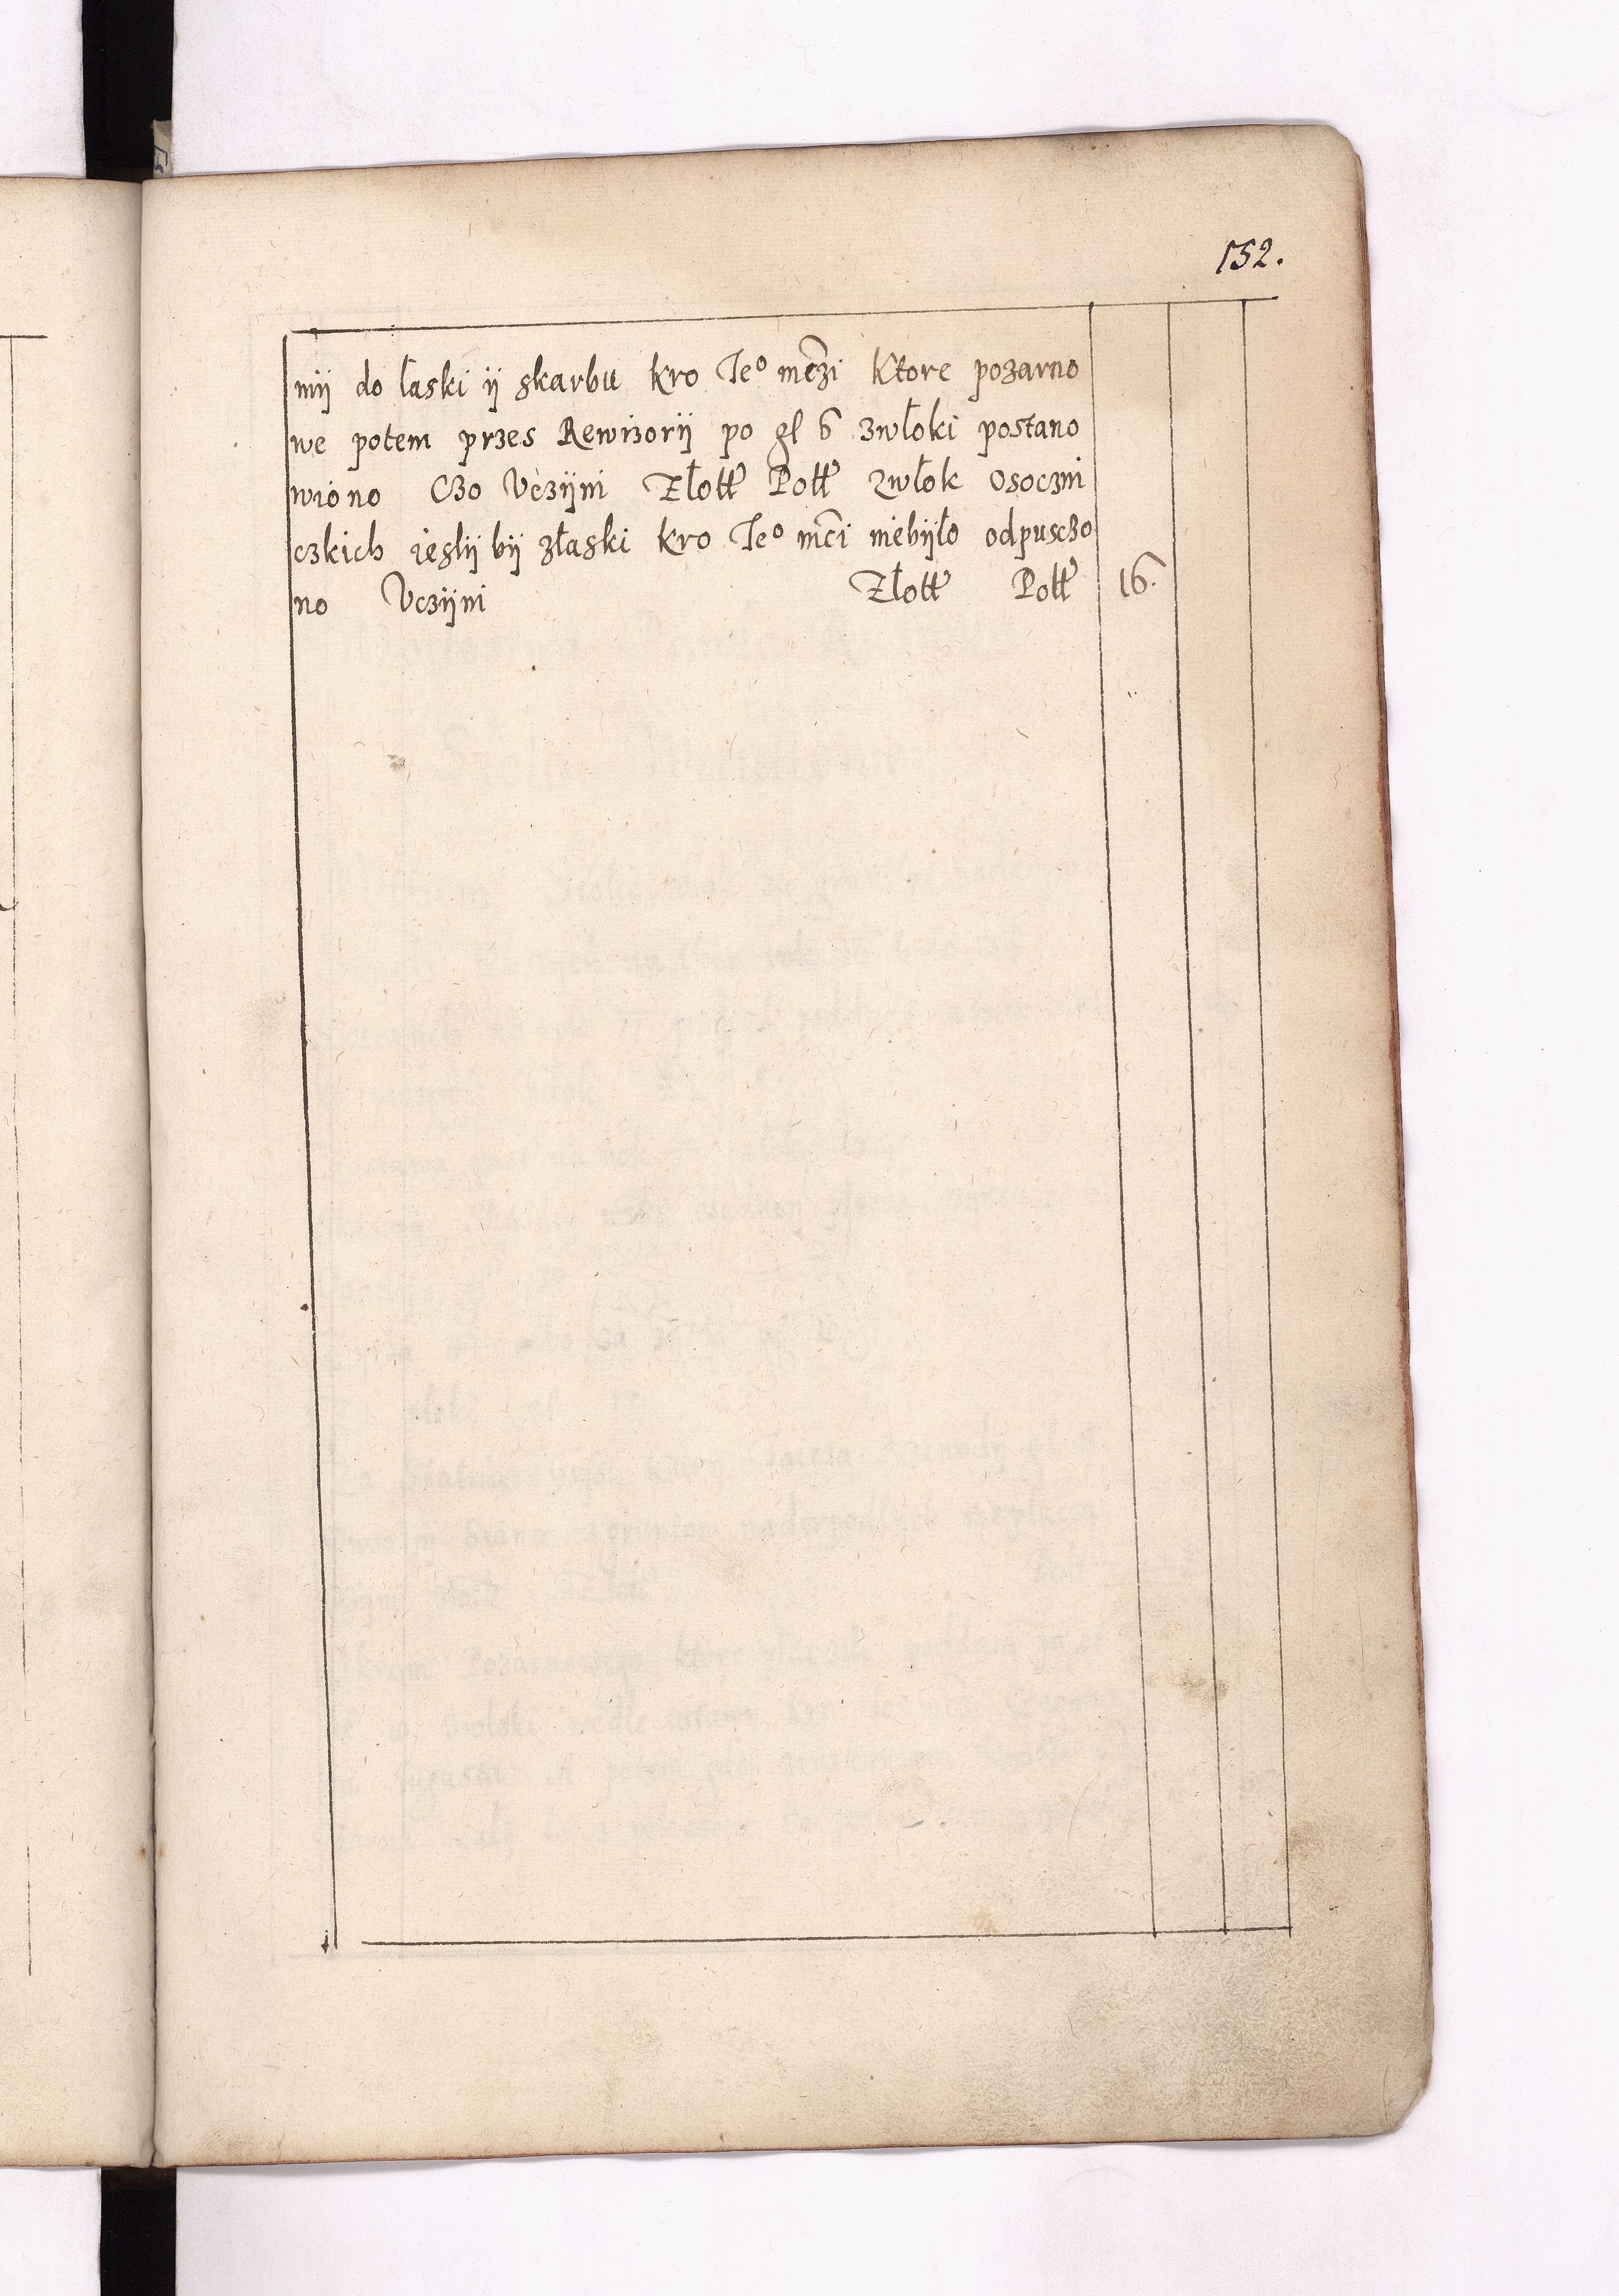 152.
mij do łaski ij skarbu kro Ieº mczi Ktore pozarno
we potem przes Rewizorij po gl 6 zwłoki postano
wiono Czo Uczijni Złotł Połł 2włok osoczni
czkich ieslij bij złaski kro Ieº mci niebijło odpusczo
no Uczijni Złotł Połł 16.